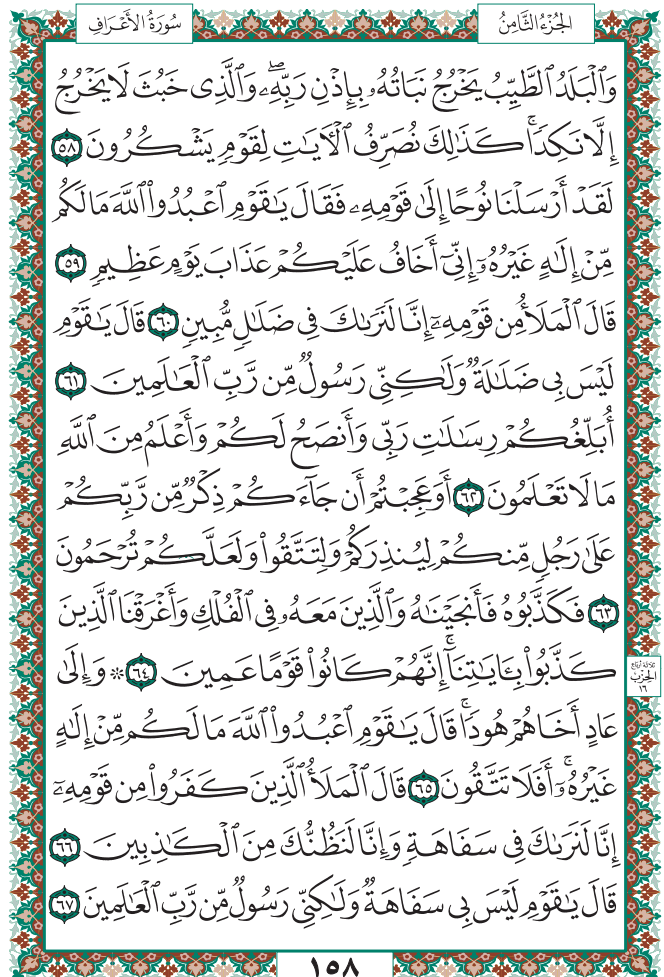 الجُزْءُ الثَّامِنُ
سُورَةُ الأَعْرَافِ
وَٱلْبَلَدُ ٱلطَّيِّبُ يَخْرُجُ نَبَاتُهُۥ بِإِذْنِ رَبِّهِۦۖ وَٱلَّذِى خَبُثَ لَا يَخْرُجُ
إِلَّا نَكِدًاۚ كَذَٰلِكَ نُصَرِّفُ ٱلْأَيَٰتِ لِقَوْمٍ يَشْكُرُونَ ٥٨
لَقَدْ أَرْسَلْنَا نُوحًا إِلَىٰ قَوْمِهِۦ فَقَالَ يَٰقَوْمِ ٱعْبُدُوا۟ ٱللَّهَ مَا لَكُم
مِّنْ إِلَٰهٍ غَيْرُهُۥٓ إِنِّىٓ أَخَافُ عَلَيْكُمْ عَذَابَ يَوْمٍ عَظِيمٍ ٥٩
قَالَ ٱلْمَلَأُ مِن قَوْمِهِۦٓ إِنَّا لَنَرَىٰكَ فِى ضَلَٰلٍ مُّبِينٍ ٦٠ قَالَ يَٰقَوْمِ
لَيْسَ بِى ضَلَٰلَةٌ وَلَٰكِنِّى رَسُولٌ مِّن رَّبِّ ٱلْعَٰلَمِينَ ٦١
أُبَلِّغُكُمْ رِسَٰلَٰتِ رَبِّى وَأَنصَحُ لَكُمْ وَأَعْلَمُ مِنَ ٱللَّهِ
مَا لَا تَعْلَمُونَ ٦٢ أَوَعَجِبْتُمْ أَن جَآءَكُمْ ذِكْرٌ مِّن رَّبِّكُمْ
عَلَىٰ رَجُلٍ مِّنكُمْ لِيُنذِرَكُمْ وَلِتَتَّقُوا۟ وَلَعَلَّكُمْ تُرْحَمُونَ
٦٣ فَكَذَّبُوهُ فَأَنجَيْنَٰهُ وَٱلَّذِينَ مَعَهُۥ فِى ٱلْفُلْكِ وَأَغْرَقْنَا ٱلَّذِينَ
كَذَّبُوا۟ بِـَٔايَٰتِنَآۚ إِنَّهُمْ كَانُوا۟ قَوْمًا عَمِينَ ٦٤ * وَإِلَىٰ
ثلاثة أرباع
الحِزْب
١٦
عَادٍ أَخَاهُمْ هُودًاۚ قَالَ يَٰقَوْمِ ٱعْبُدُوا۟ ٱللَّهَ مَا لَكُم مِّنْ إِلَٰهٍ
غَيْرُهُۥٓۚ أَفَلَا تَتَّقُونَ ٦٥ قَالَ ٱلْمَلَأُ ٱلَّذِينَ كَفَرُوا۟ مِن قَوْمِهِۦٓ
إِنَّا لَنَرَىٰكَ فِى سَفَاهَةٍ وَإِنَّا لَنَظُنُّكَ مِنَ ٱلْكَٰذِبِينَ ٦٦
قَالَ يَٰقَوْمِ لَيْسَ بِى سَفَاهَةٌ وَلَٰكِنِّى رَسُولٌ مِّن رَّبِّ ٱلْعَٰلَمِينَ ٦٧
١٥٨